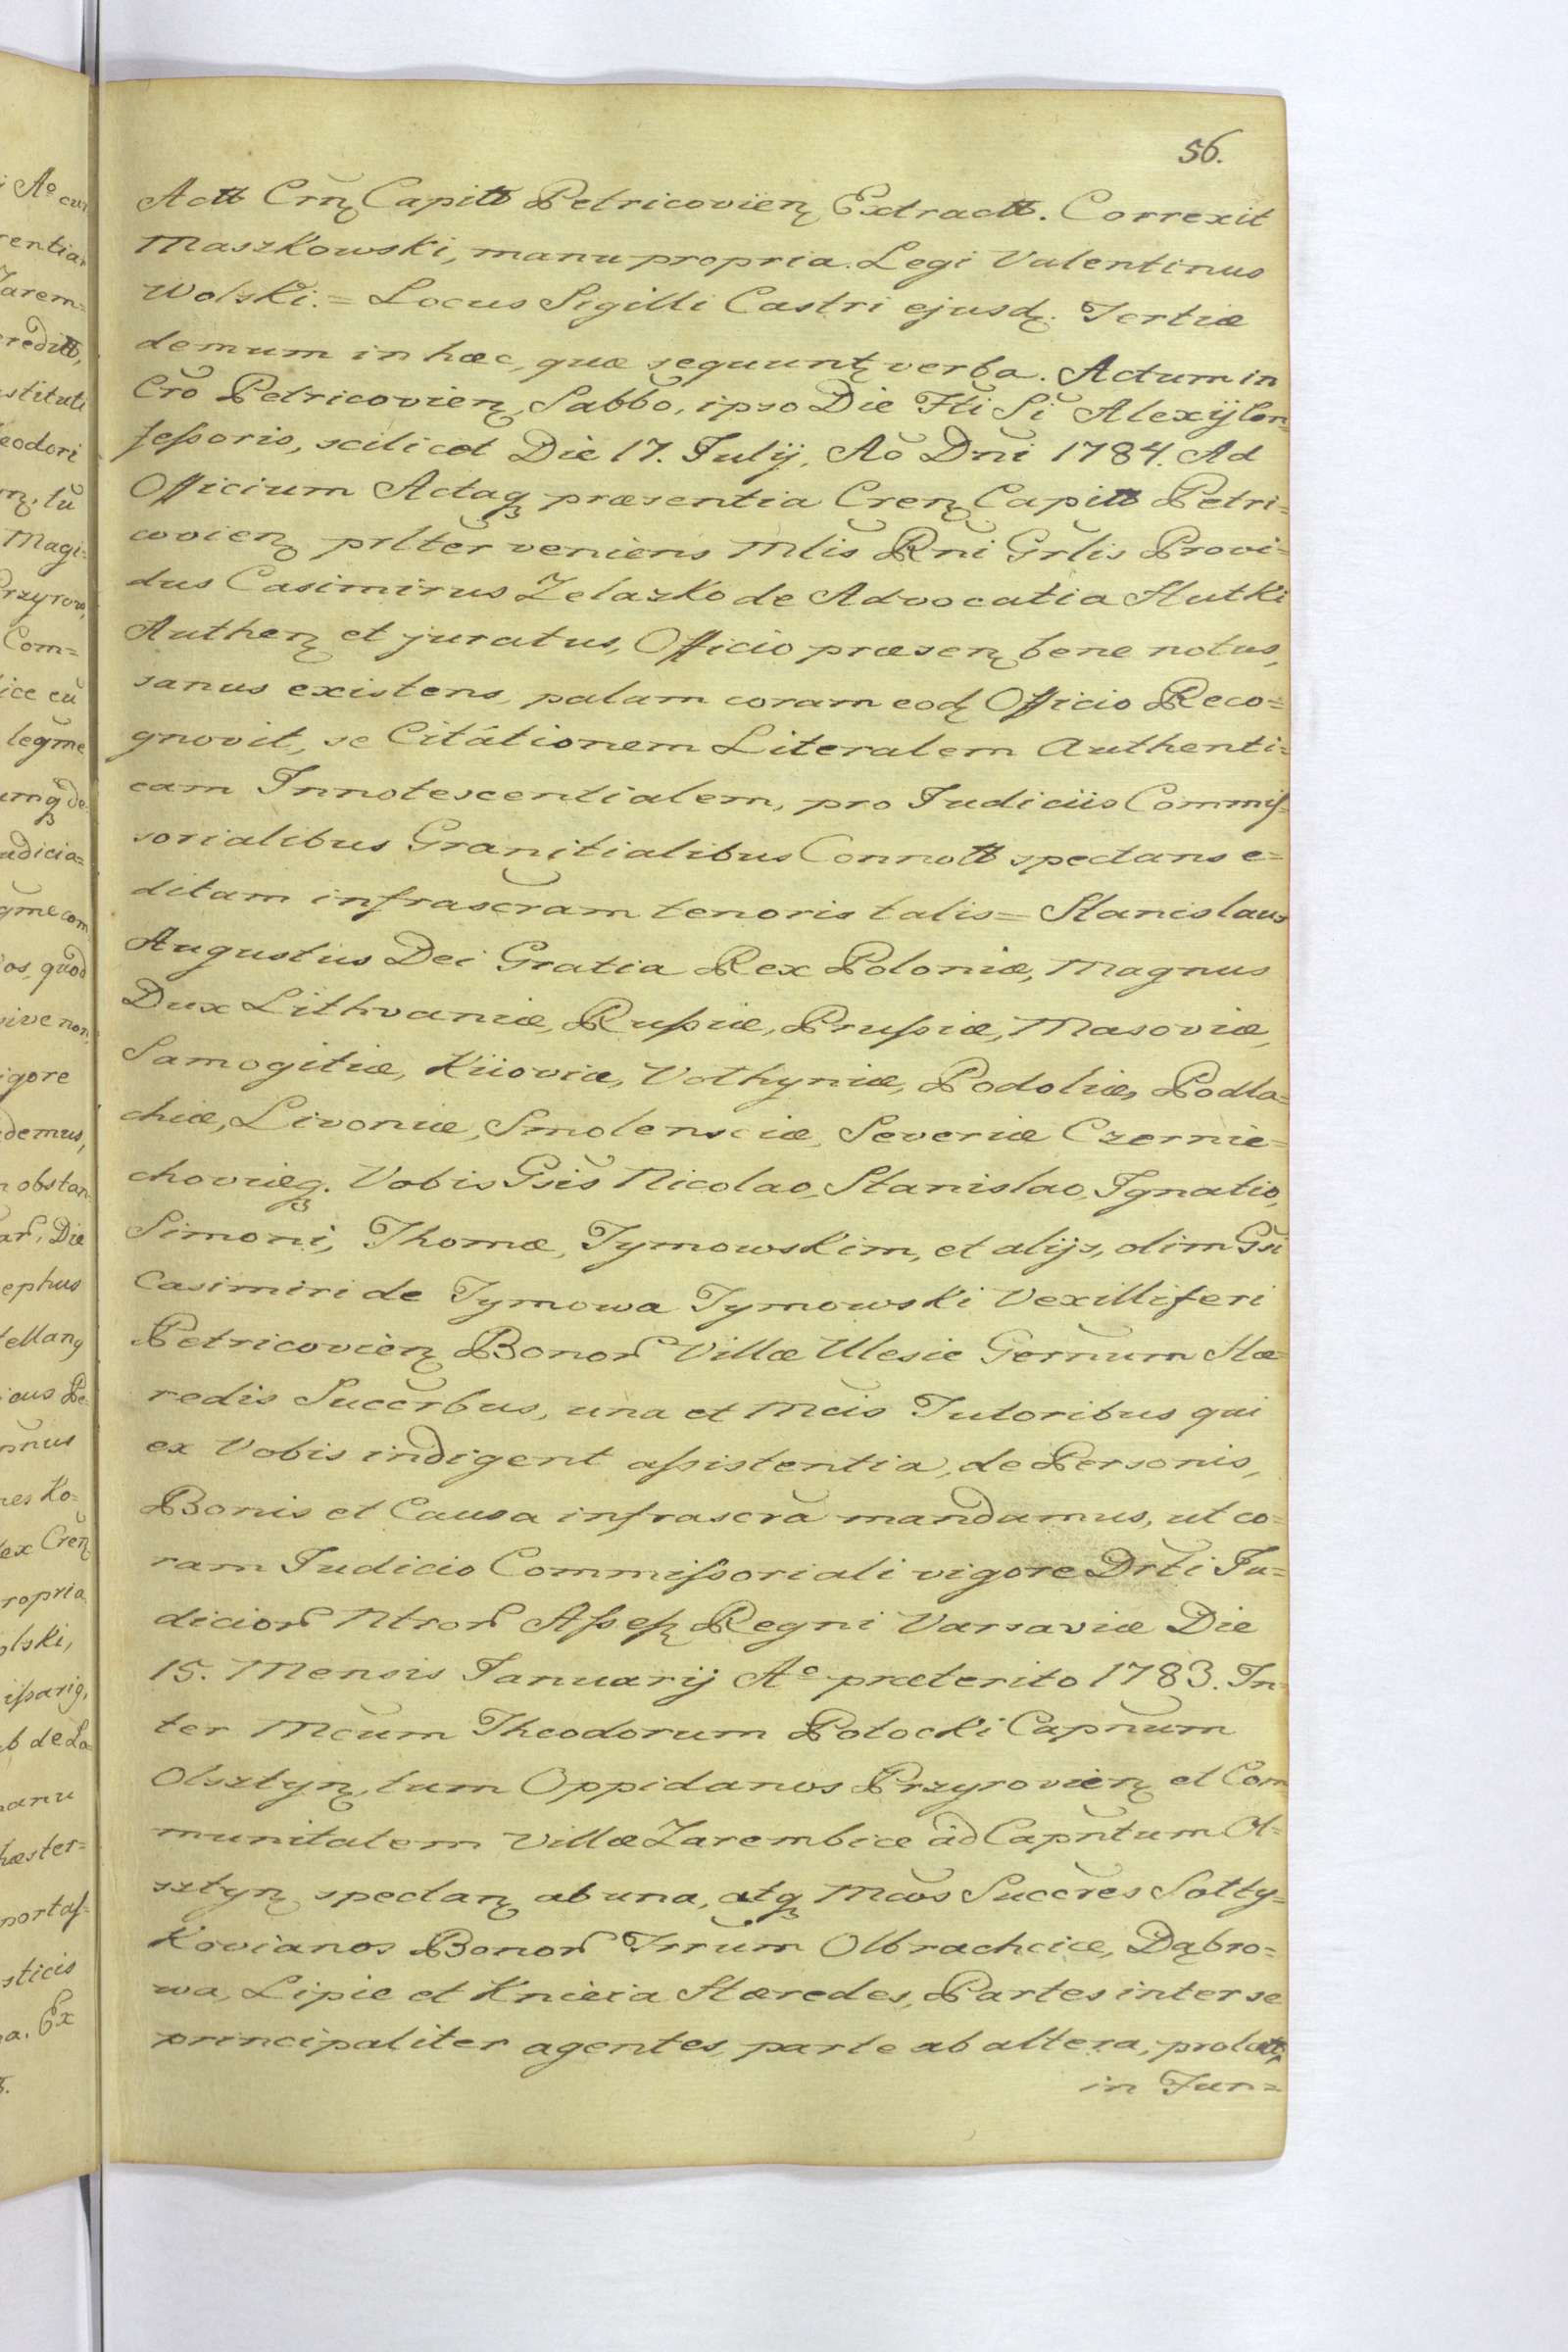 56.
Actt Crñ Capitt Petricovien Extractt. Correxit
Maszkowski, manu propria. Legi Valentinus
Wolski. = Locus Sigilli Castri ejusd. Tertiæ
demum in hæc, quæ sequunt verba. Actum in
Cro Petricovien, Sabbo, ipso Die Fti Si Alexij Con=
fessoris, scilicet Die 17. Julij, Ao Dni 1784. Ad
Officium Actaq præsentia Cren Capitt Petri=
covien prlter veniens Mlis Rni Grlis Provi=
dus Casimirus Zelazko de Advocatia Hutki
Authen et juratus, Officio præsen bene notus,
sanus existens, palam coram eod Officio Reco=
gnovit, se Citátionem Literalem Authenti=
cam Innotescentialem, pro Judiciis Commis=
sorialibus Granitialibus Connott spectans e=
ditam infrascram tenoris talis = Stanislaus
Augustus Dei Gratia Rex Poloniæ, Magnus
Dux Lithvaniæ, Russiæ, Prussiæ, Masoviæ,
Samogitiæ, Kiioviæ, Volhyniæ, Podoliæ, Podla=
chiæ, Livoniæ, Smolensciæ, Severiæ Czernie=
choviæq. Vobis Gsis Nicolao, Stanislao, Ignatio,
Simoni, Thomæ, Tymowskim, et alijs, olim Gsi
Casimiri de Tymowa Tymowski Vexilliferi
Petricovien Bonor Villæ Ulesie Gernum Hæ=
redis Succrbus, una et Mcis Tutoribus qui
ex Vobis indigent assistentia, de Personis,
Bonis et Causa infrascra mandamus, ut co=
ram Judicio Commissoriali vigore Drti Ju=
dicior Ntror Assess Regni Varsaviæ Die
15. Mensis Januarij Aº præterito 1783. In=
ter Mcum Theodorum Potocki Capnum
Olsztyn, tum Oppidanos Przyrovien et Com
munitatem Villæ Zarembice ad Capntum Ol=
sztyn spectan ab una, atq Mcos Succres Sotty=
kovianos Bonor Trrum Olbrachcice, Dąbro=
wa, Lipie et Knieia Hæredes, Partes inter se
principaliter agentes, parte ab altera, prolatt,
in Jun=